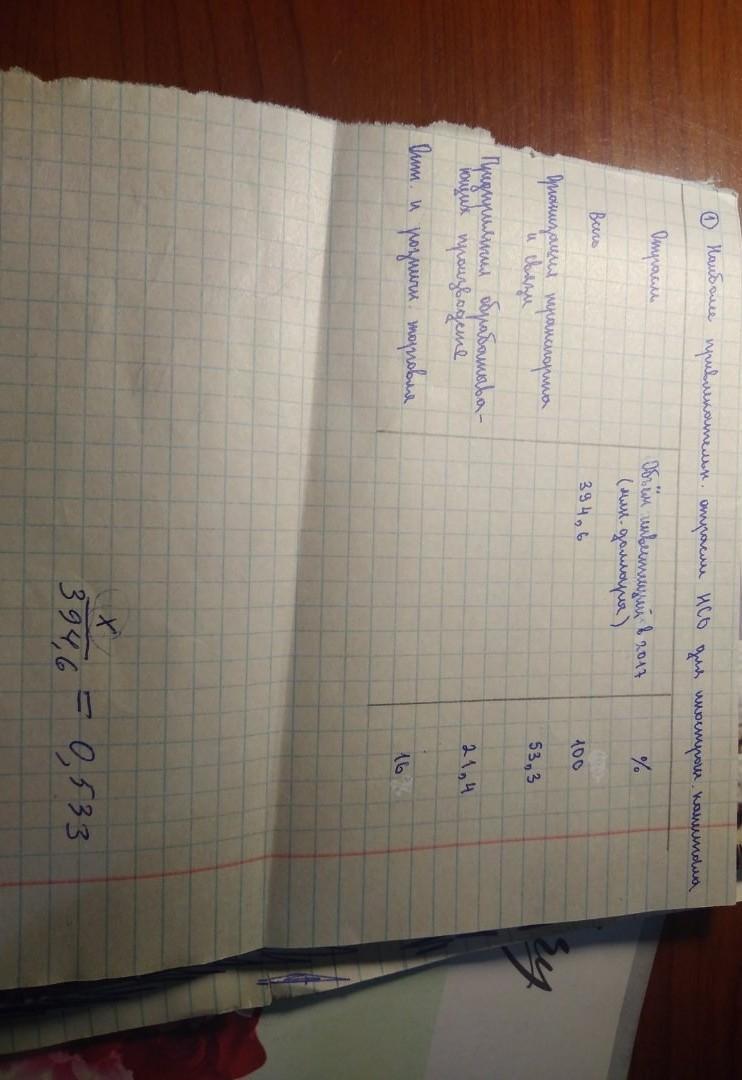 ① Наиболее привлекательн. отрасли НСО для иностран. капитала
Отрасль
Объём инвестиций в 2017
(млн. доллара)
%
Всего
394,6
100
Организация транспорта
и связи
53,3
Предприятия обрабатыва-
ющих производств
21,4
Опт. и рознични. торговля
16
x
394,6
= 0,533